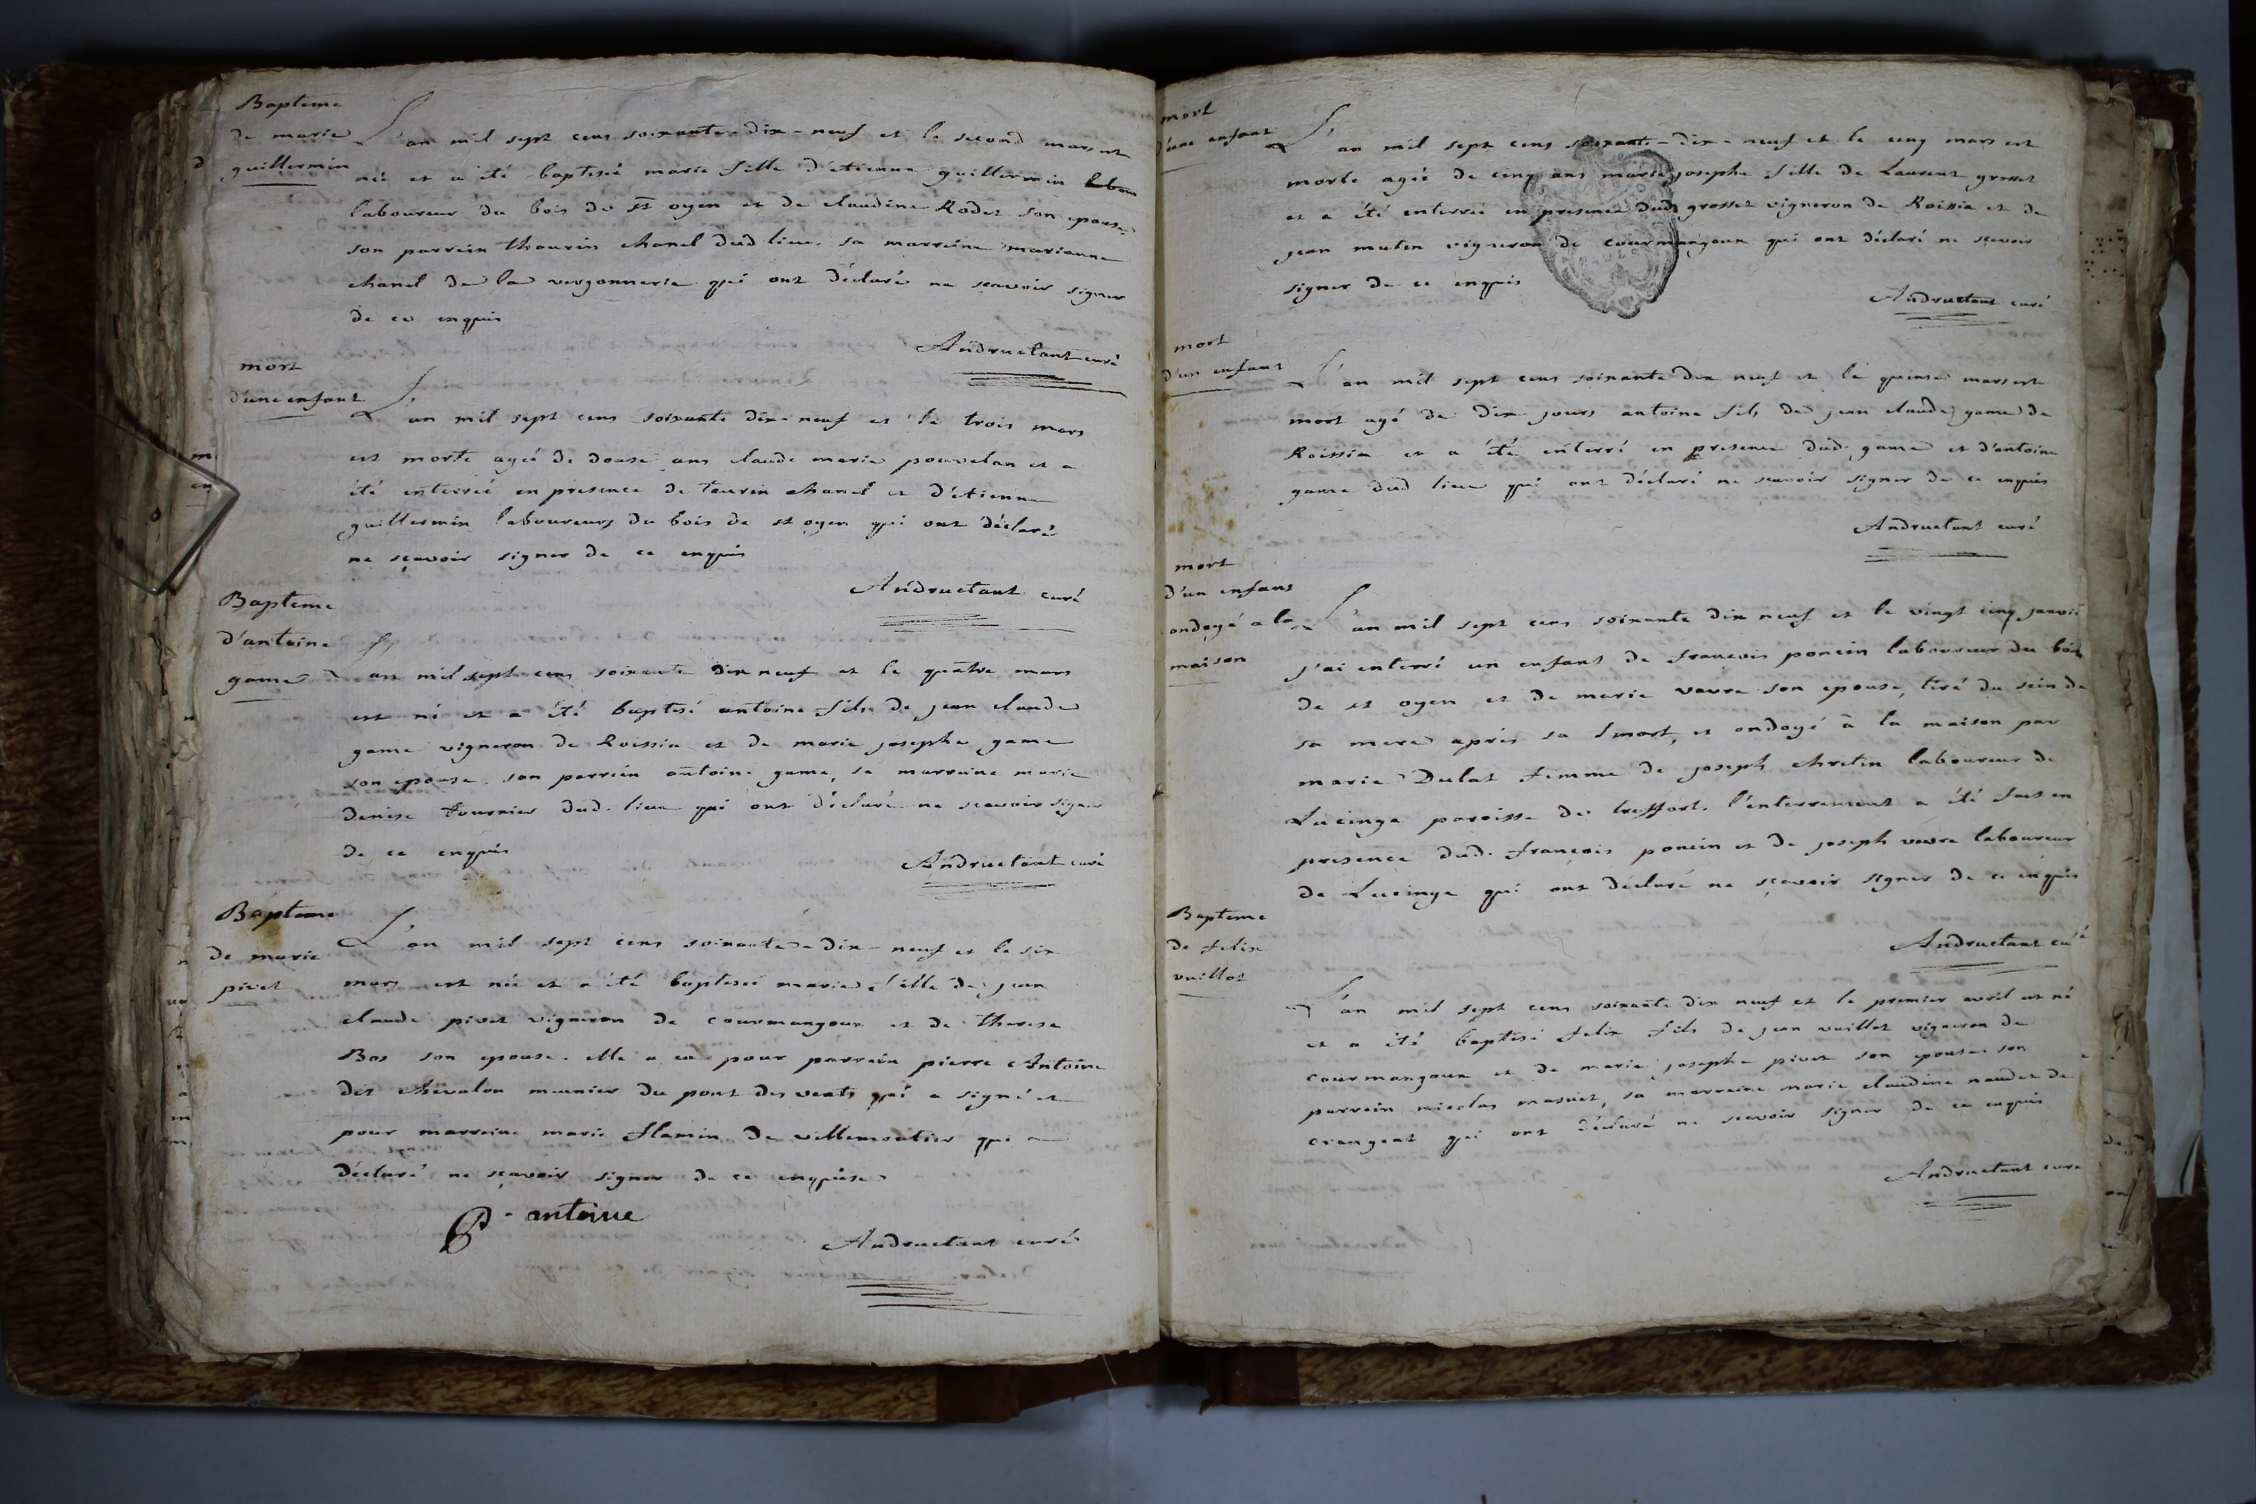 Bapteme
de marie
guillermin
L'an mil sept cens soixante-dix-neuf et le second mars est
née et a été baptisée marie fille d'étienne guillermin
laboureur du bois de st oyen et de claudine Rodet son epouse
son parrein thaurin chanel dud lieu. sa marreine marianne
chanel de la vergonnerie qui ont déclaré ne scavoir signer
de ce enquis
Andructant curé
mort
d'une enfant
L'an mil sept cens soixante dix-neuf et le trois mars
est morte agée de douse ans claude marie pouvelan et a
été enterrée en presence de taurin chanel et d'étienne
guillermin laboureurs du bois de st oyen qui ont déclaré
ne sçavoir signer de ce enquis
Andructant curé
Bapteme
d'antoine
game
L'an mil sept cens soixante dix neuf et le quatre mars
est né et a été baptisé antoine fils de jean claude
game vigneron de Roissia et de marie josephe game
son epouse. son parrein antoine game, sa marreine marie
denise fournier dud. lieu qui ont déclaré ne scavoir signer
de ce enquis
Andructant curé
Bapteme
de marie
pivet
L'an mil sept cens soixante-dix-neuf et le six
mars est née et a été baptisée marie fille de jean
claude pivet vigneron de courmangoux et de therese
Bos son epouse. elle a eu pour parrein pierre Antoine
det chevalon meunier du pont des vents qui a signé et
pour marreine marie flamin de villemoutier qui a
déclaré ne sçavoir signer de ce enquise
P. antoine
Andructant curé
mort
d'une enfant
L'an mil sept cens soixante-dix-neuf et le cinq mars est
morte agée de cinq ans marie josephe fille de Laurent grosset
et a été enterrée en presence dud grosset vigneron de Roissia et de
jean mutin vigneron de courmangoux qui ont déclaré ne sçavoir
signer de ce enquis
Andructant curé
mort
d'un enfant
L'an mil sept cens soixante dix neuf et le quinse mars est
mort agé de dix jours antoine fils de jean claude game de
Roissia et a été enterré en presence dud. game et d'antoine
game dud lieu qui ont déclaré ne scavoir signer de ce enquis
Andructant curé
mort
d'un enfant
ondoyé a la
maison
L'an mil sept cens soixante dix neuf et le vingt cinq janvié
j'ai enterré un enfant de françois poncin laboureur du bois
de st oyen et de marie vavre son epouse, tiré du sein de
sa mere après sa mort, et ondoyé à la maison par
marie Dulat femme de joseph chretin laboureur de
Lucinge paroisse de treffort. l'enterrement a été fait en
presence dud. françois poncin et de joseph vavre laboureur
de Lucinge qui ont déclaré ne sçavoir signer de ce enquis
Andructant curé
Bapteme
de felix
vuillot
L'an mil sept cens soixante dix neuf et le premier avril est né
et a été baptisé felix fils de jean vuillot vigneron de
courmangoux et de marie josephe pivet son epouse son
parrein nicolas masuet, sa marreine marie claudine naudet de
crangeat qui ont déclaré ne scavoir signer de ce enquis
Andructant curé